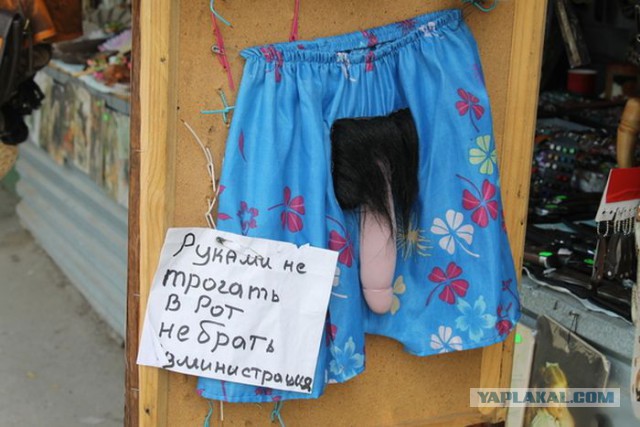 Руками не
трогать
В Рот
не брать
администрация
YAPLAKAL.COM